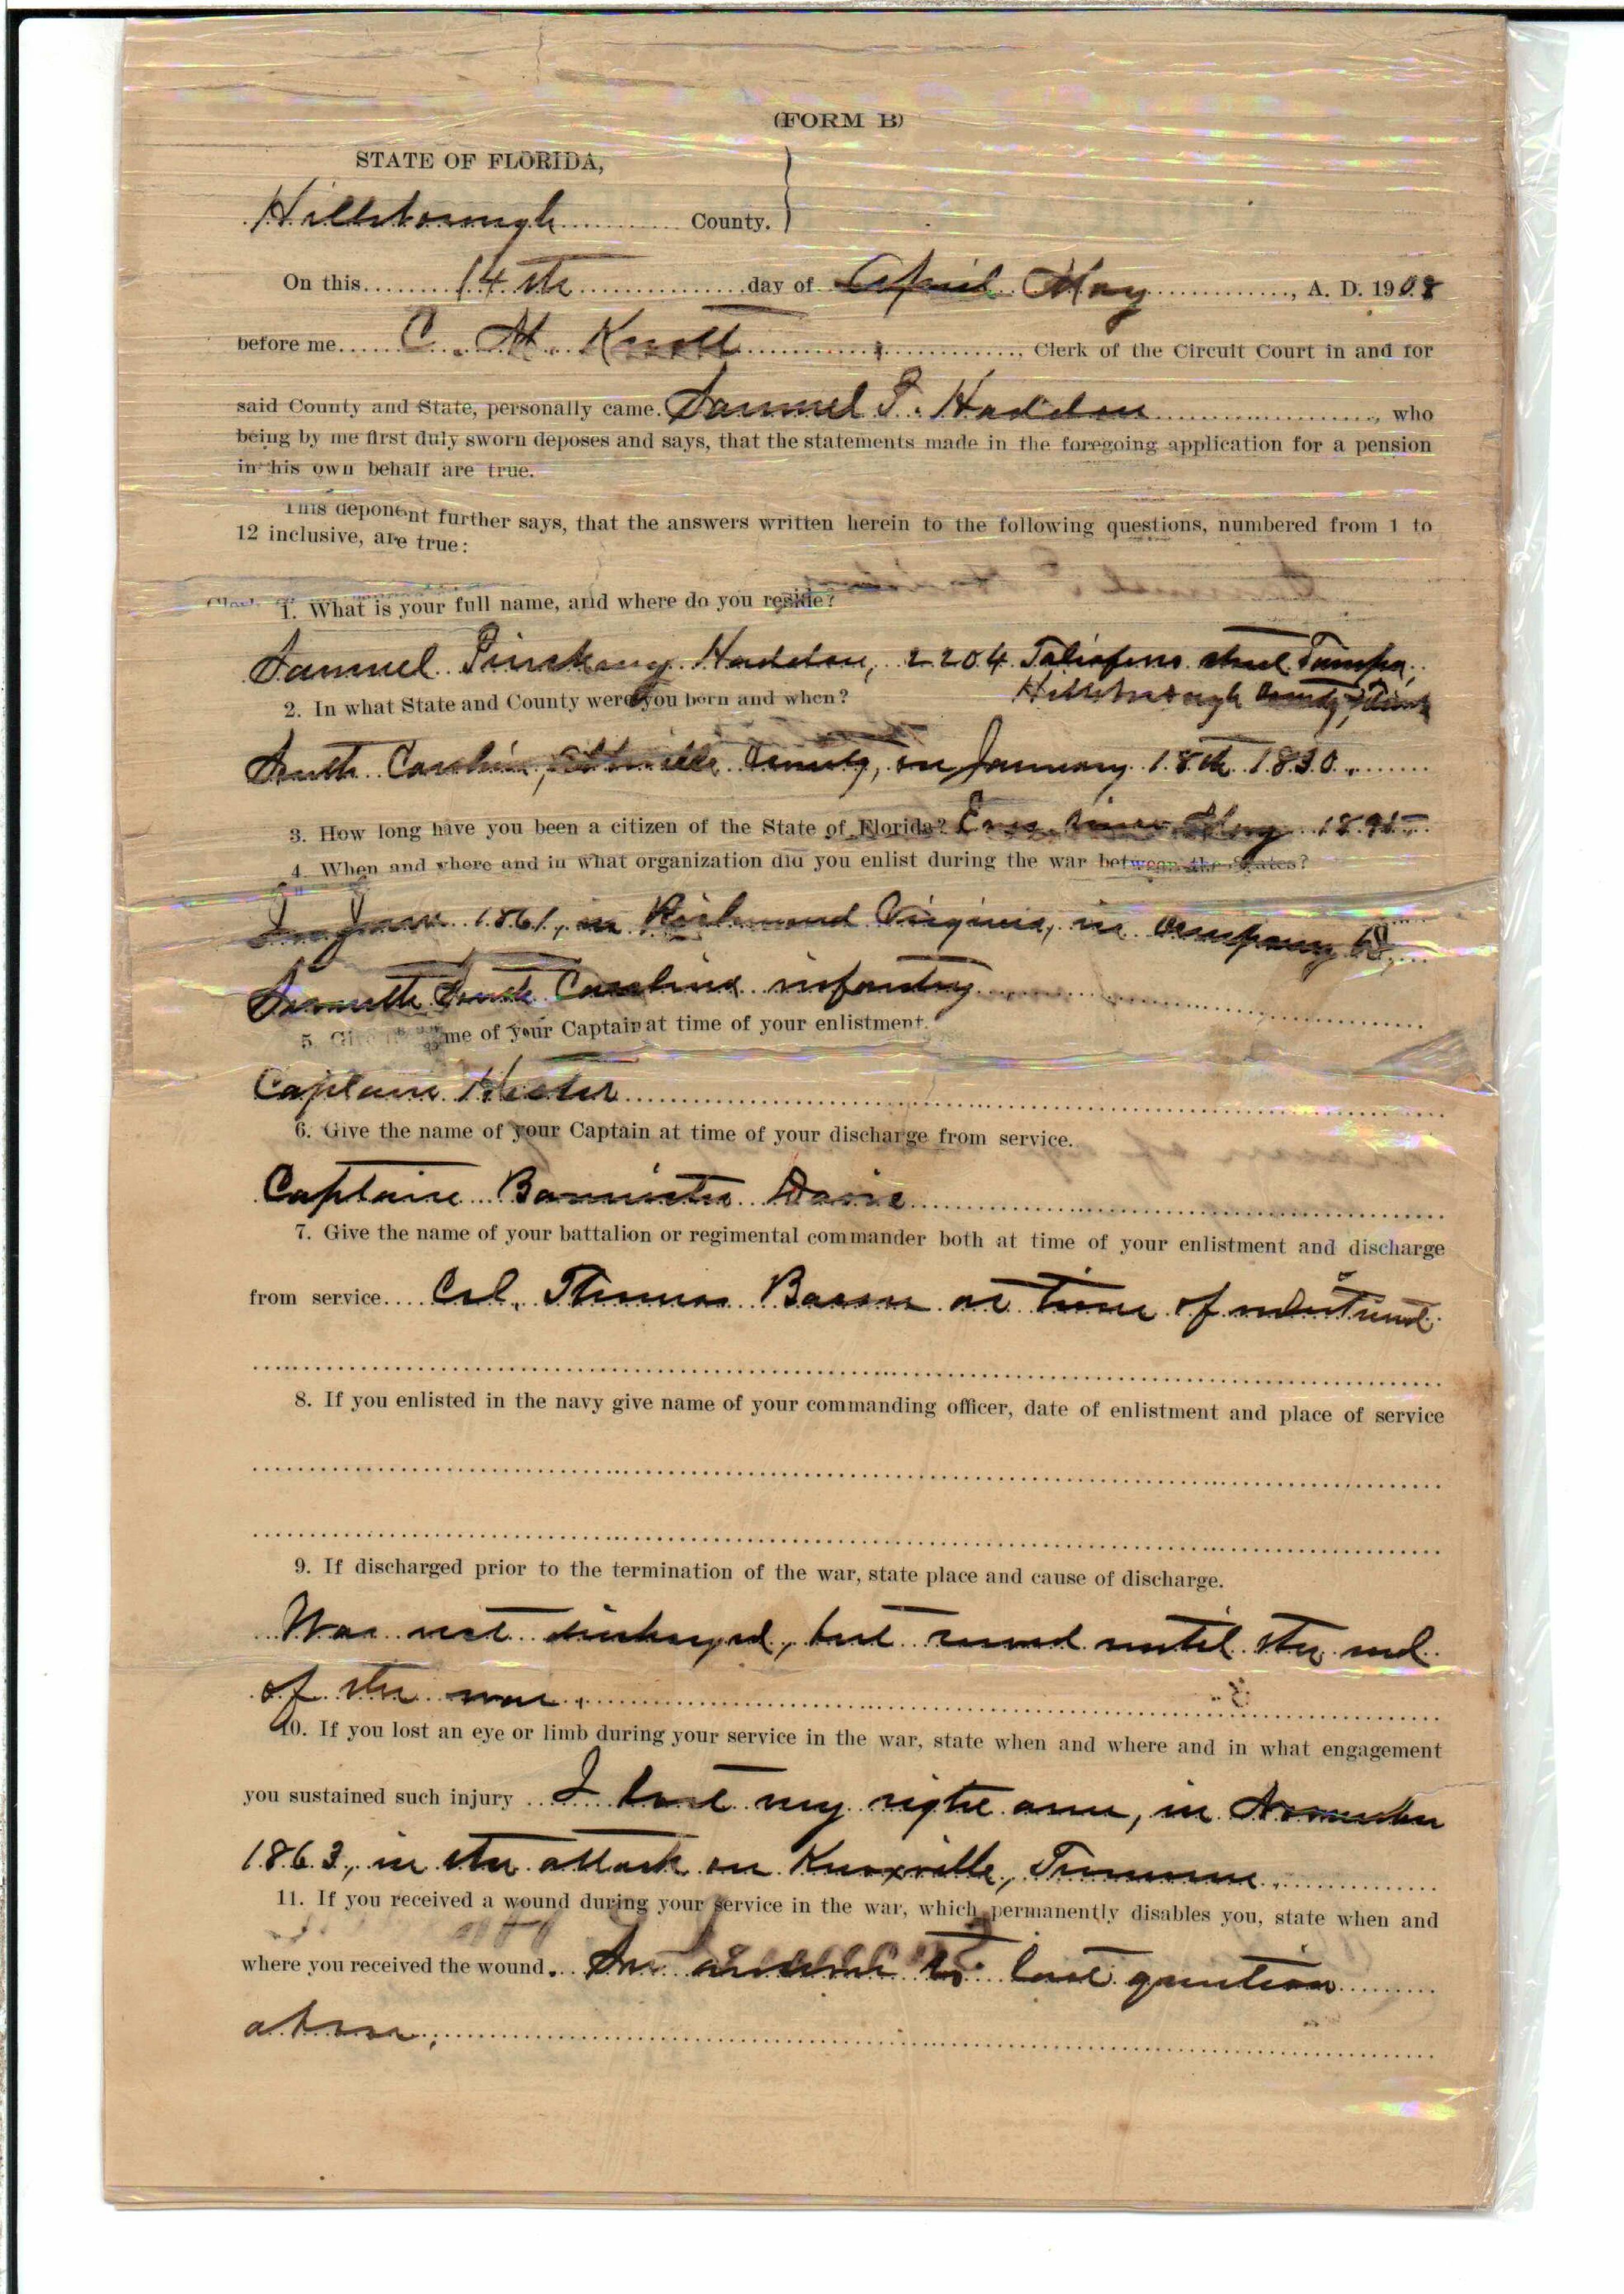 (FORM B)
STATE OF FLORIDA,
Hillsborough County.
On this 14th day of April May, A. D. 1908
before me C. H. Knott, Clerk of the Circuit Court in and for
said County and State, personally came Samuel P. Haddon, who
being by me first duly sworn deposes and says, that the statements made in the foregoing application for a pension
in his own behalf are true.
This deponent further says, that the answers written herein to the following questions, numbered from 1 to
12 inclusive, are true:
1. What is your full name, and where do you reside?
Samuel Pinckney Haddon, 2204 Taliaferro street Tampa,
Hillsborough County,
2. In what State and County were you born and when?
South Carolina, Abbeville County, on January 18th 1830.
3. How long have you been a citizen of the State of Florida? Ever since May 1895
4. When and where and in what organization did you enlist during the war between the States?
In June 1861, in Richmond Virginia, in company
Seventh South Carolina infantry
5. Give the name of your Captain at time of your enlistment.
Captain Hester
6. Give the name of your Captain at time of your discharge from service.
Captain Bannister
7. Give the name of your battalion or regimental commander both at time of your enlistment and discharge
from service Col. Thomas Bacon at time of enlistment
8. If you enlisted in the navy give name of your commanding officer, date of enlistment and place of service
9. If discharged prior to the termination of the war, state place and cause of discharge.
Was not discharged, but served until the end
of the war.
10. If you lost an eye or limb during your service in the war, state when and where and in what engagement
you sustained such injury I lost my right arm, in November
1863, in the attack on Knoxville, Tennessee.
11. If you received a wound during your service in the war, which permanently disables you, state when and
where you received the wound. See answer to last question
above.